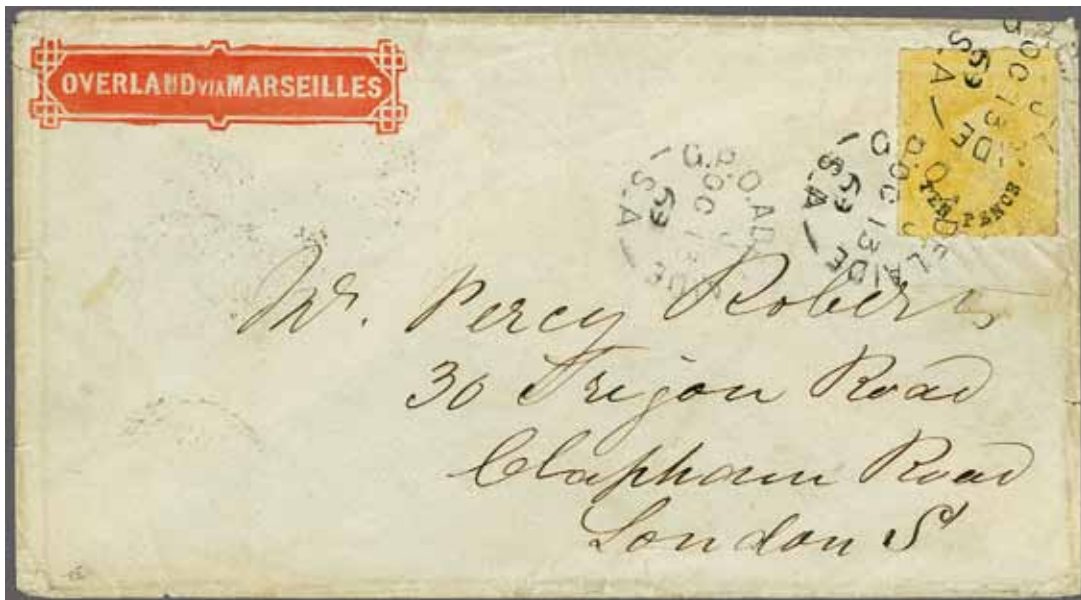 OVERLAND VIA MARSEILLES
TEN PENCE
G.P.O. ADELAIDE
OC 13
69
S.A
G.P.O. ADELAIDE
OC 13
69
S.A
Mr. Percy Roberts
30 Trigon Road
Clapham Road
London S